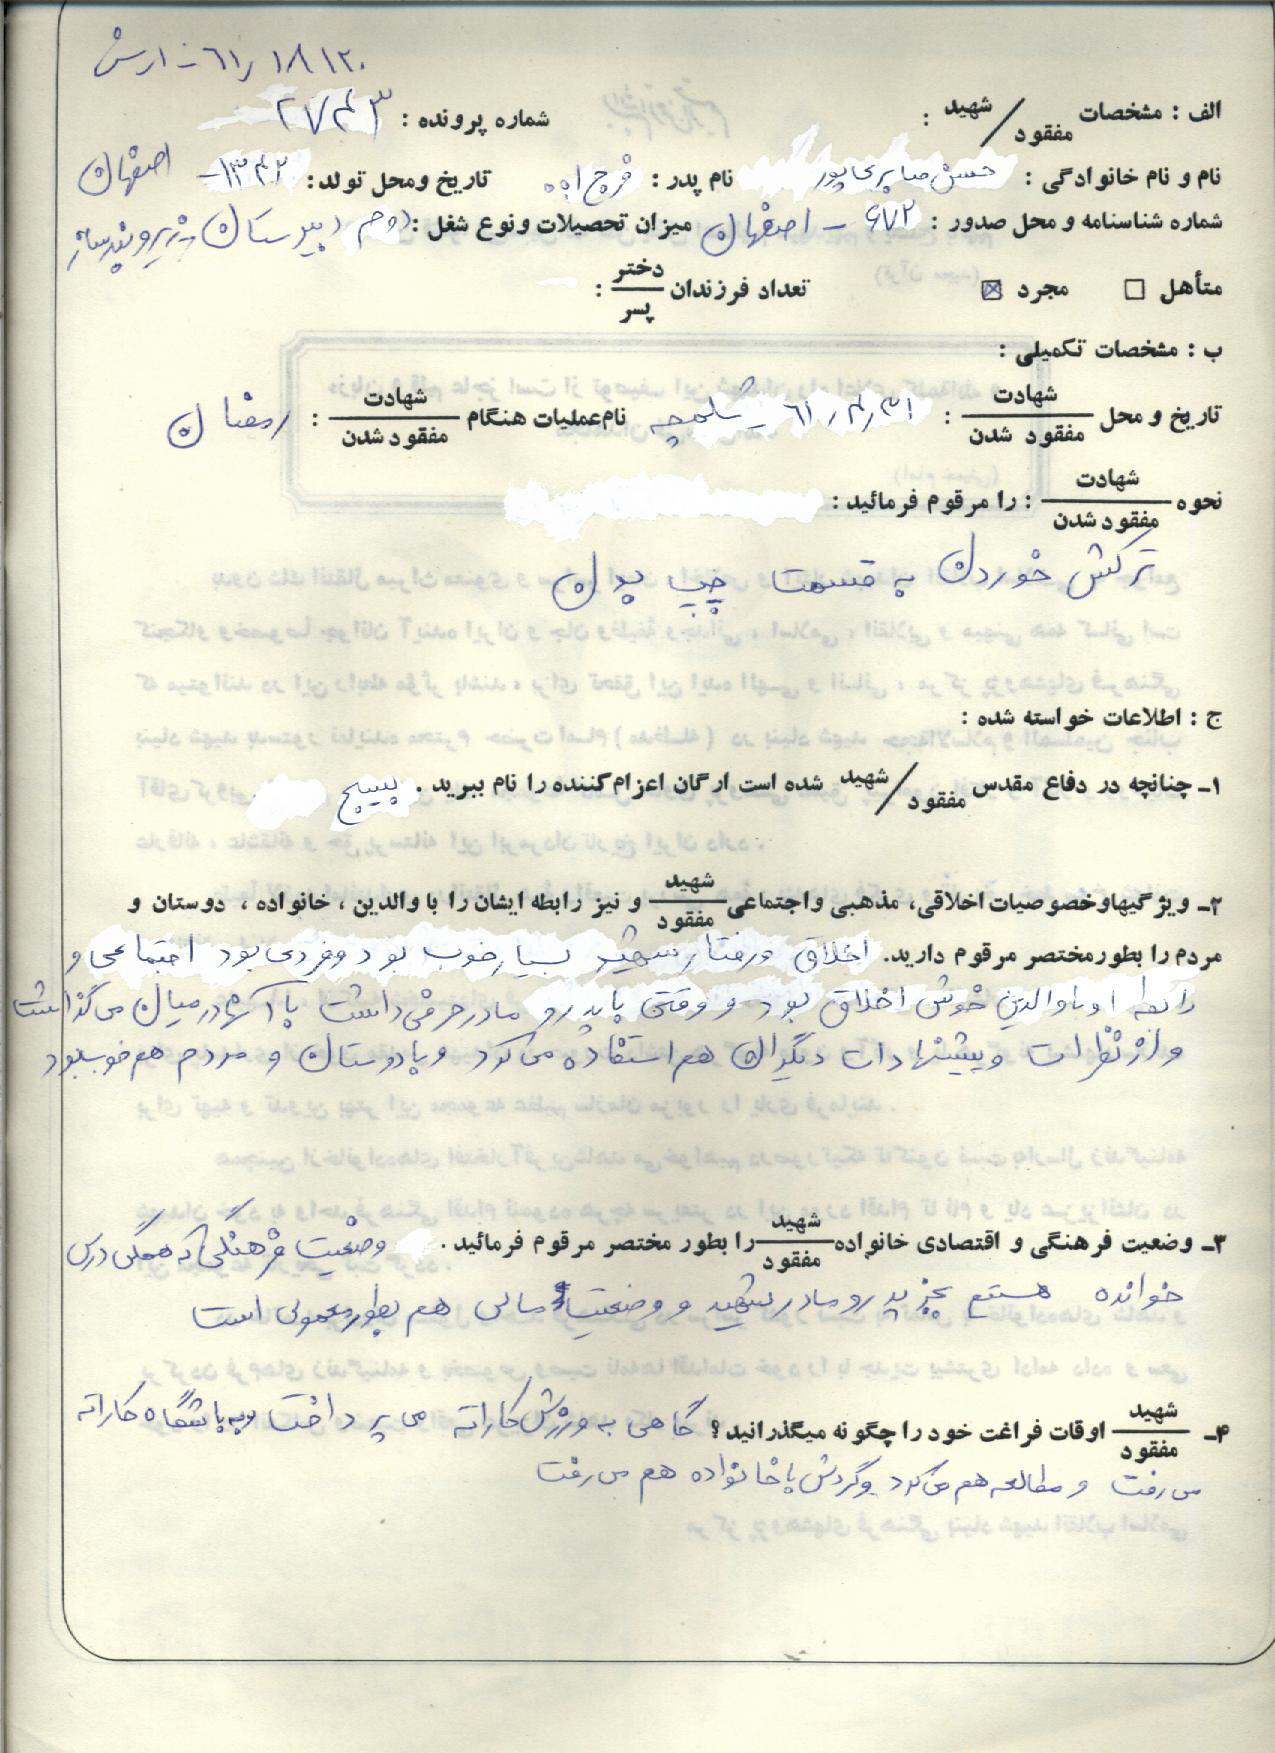 ۶۱٫۱۸۱۲۰ - ارتش
الف : مشخصات شهید / مفقود : شماره پرونده : ۲۷۴۳
نام و نام خانوادگی : حسن صابری پور نام پدر : فرج اله تاریخ ومحل تولد : ۱۳۴۲- اصفهان
شماره شناسنامه و محل صدور : ۶۷۲ - اصفهان میزان تحصیلات ونوع شغل : دوم دبیرستان
متأهل ☐ مجرد ☒ تعداد فرزندان دختر / پسر :
ب : مشخصات تکمیلی :
تاریخ و محل شهادت / مفقود شدن : ۶۱٫۴٫۳۱ - شلمچه نام عملیات هنگام شهادت / مفقود شدن : رمضان
نحوه شهادت / مفقود شدن : را مرقوم فرمائید :
ترکش خوردن به قسمت چپ بدن
ج : اطلاعات خواسته شده :
۱- چنانچه در دفاع مقدس شهید / مفقود شده است ارگان اعزام کننده را نام ببرید . بسیج
۲- ویژگیهاوخصوصیات اخلاقی، مذهبی واجتماعی شهید / مفقود و نیز رابطه ایشان را با والدین ، خانواده ، دوستان و
مردم را بطور مختصر مرقوم دارید. اخلاق ورفتار شهید بسیار خوب بود وفردی بود اجتماعی و
رابطه او باوالدین خوش اخلاق بود و وقتی با پدر و مادر حرفی داشت با آنها در میان می گذاشت
و از نظرات وپیشنهادات دیگران هم استفاده می کرد و با دوستان و مردم هم خوب بود
۳- وضعیت فرهنگی و اقتصادی خانواده شهید / مفقود را بطور مختصر مرقوم فرمائید . وضعیت فرهنگی که همگی درس
خوانده هستیم بجز پدر و مادر شهید و وضعیت مالی هم بطور معمولی است
۴- شهید / مفقود اوقات فراغت خود را چگونه میگذرانید ؟ گاهی به ورزش کاراته می پرداخت وبه باشگاه کاراته
می رفت و مطالعه هم می کرد وگردش با خانواده هم می رفت